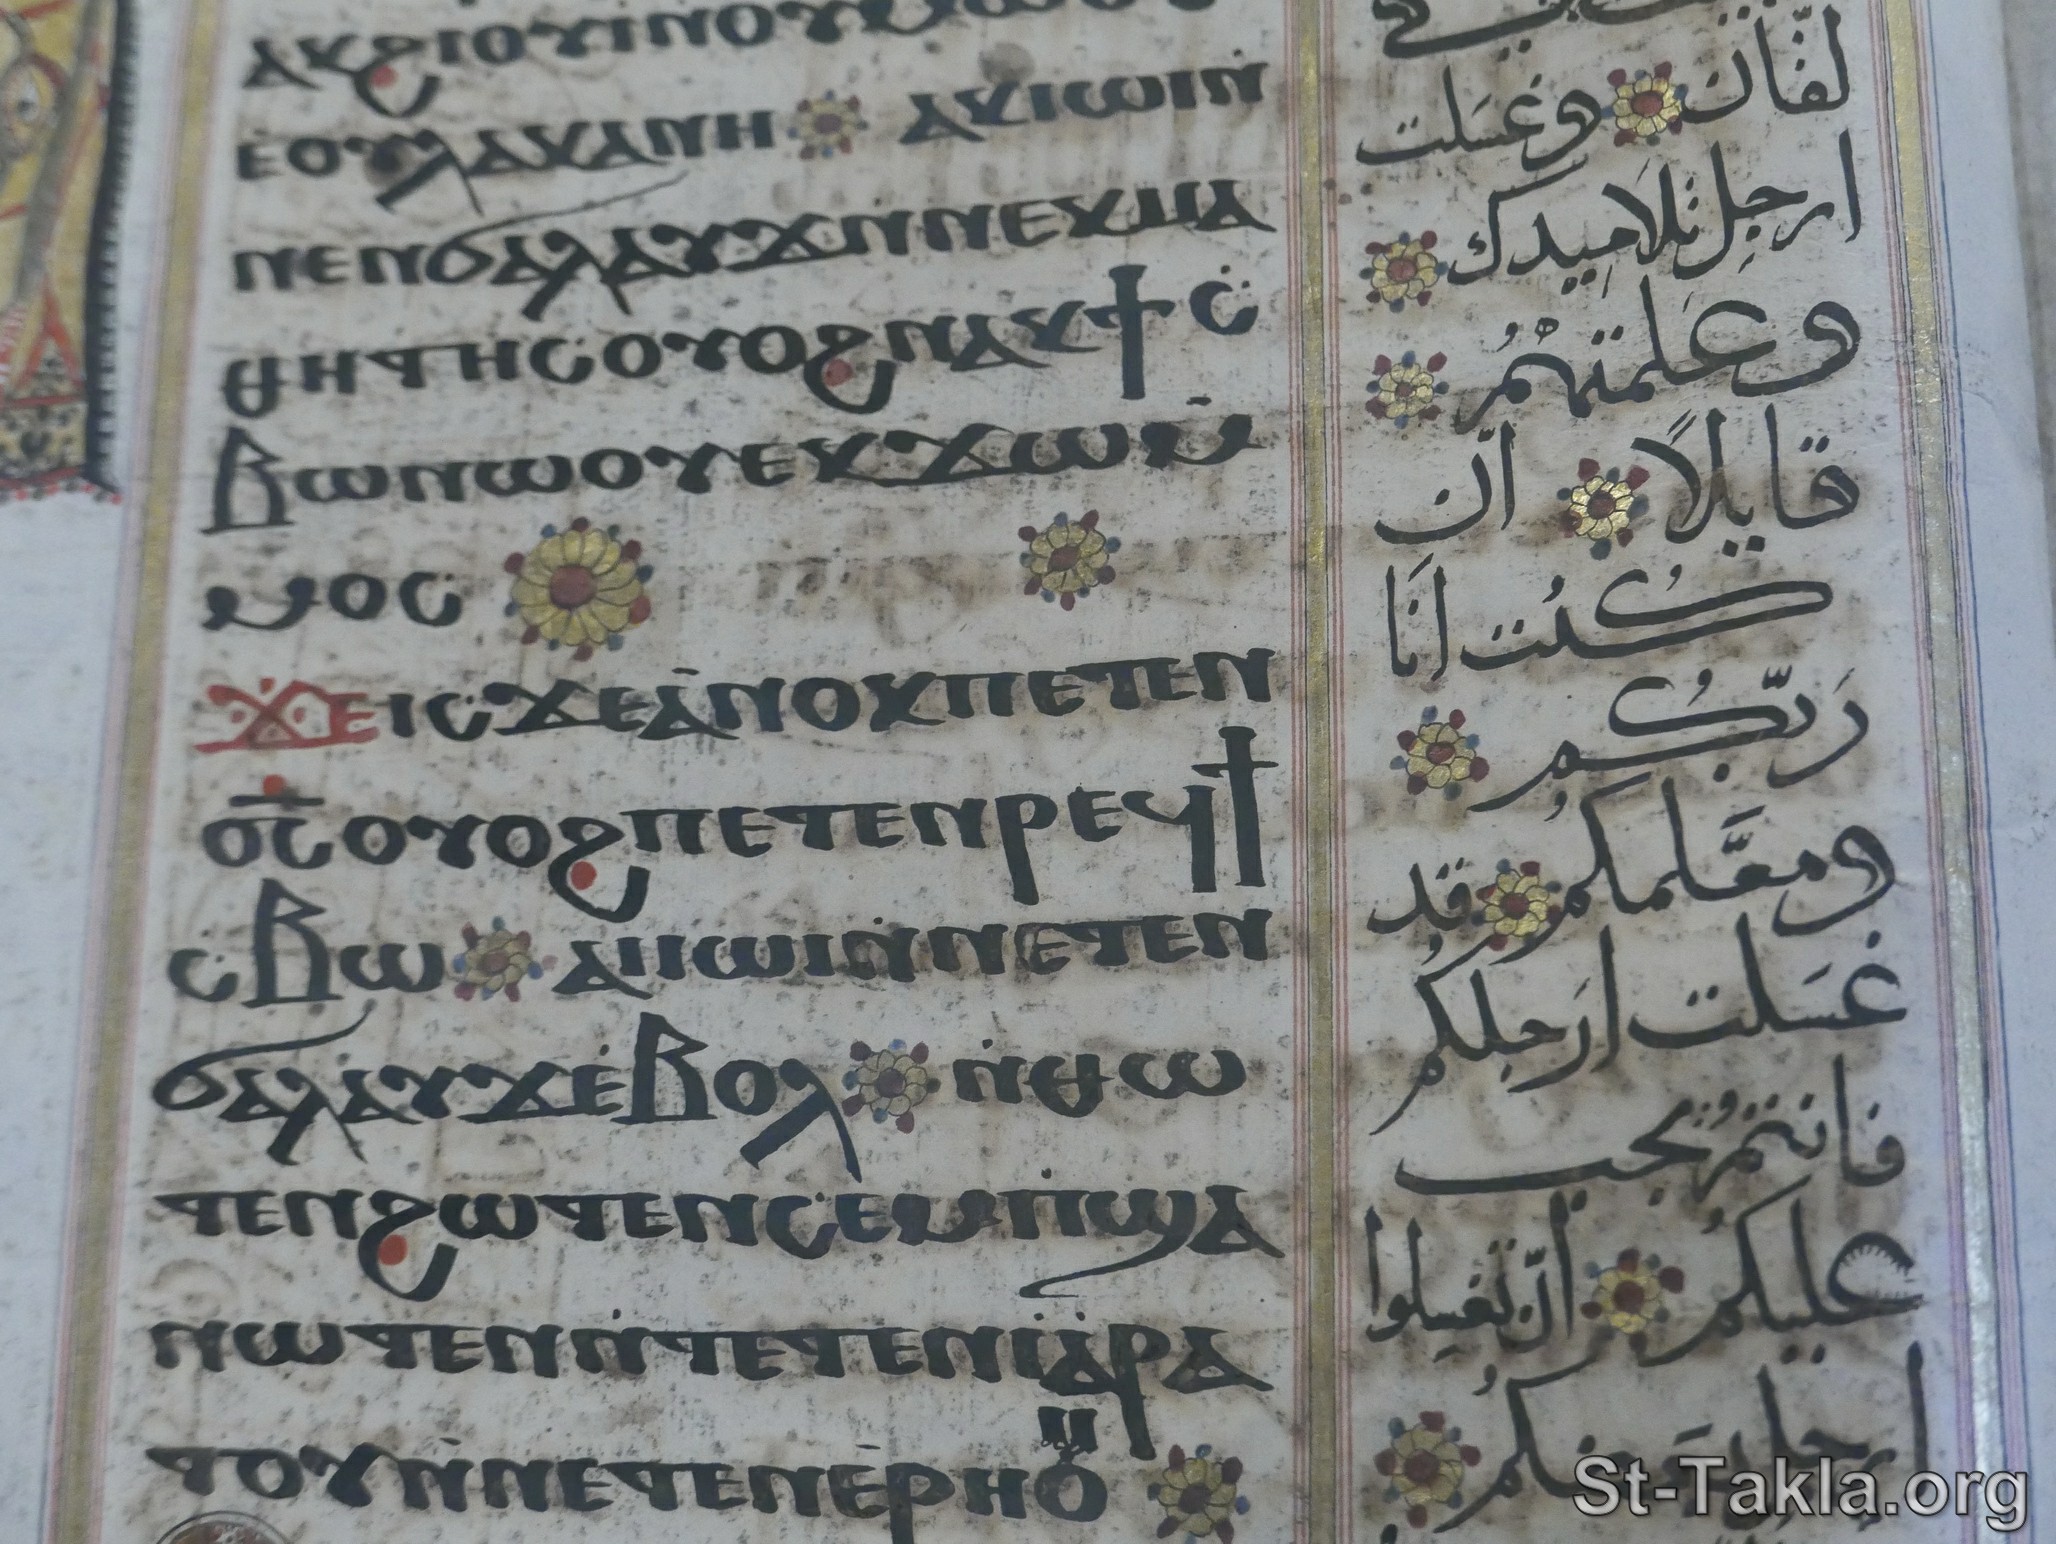 ⲁⲕϩⲓⲟⲩⲓⲛⲟⲩ
ⲉⲟⲩⲗⲁⲕⲁⲛⲏ ⲁⲕⲓⲱⲓⲛ̀
ⲛⲉⲛϭⲁⲗⲁⲩϫⲛ̀ⲛⲉⲕⲙⲁ
ⲑⲏⲧⲏⲥⲟⲩⲟϩⲛⲁⲕϯⲥ̀
ⲃⲱⲛⲱⲟⲩⲉⲕϫⲱⲙ̀
ⲙⲟⲥ
ϫⲉⲓⲥϫⲉⲁ̀ⲛⲟⲕⲡⲉⲧⲉⲛ
ⲟ̅ⲥ̅ⲟⲩⲟϩⲡⲉⲧⲉⲛⲣⲉϥϯ
ⲥⲃⲱ ⲁⲓⲓⲱⲓⲛ̀ⲛⲉⲧⲉⲛ
ϭⲁⲗⲁⲩϫⲉ̀ⲃⲟⲗ ⲛ̀ⲑⲱ
ⲧⲉⲛϩⲱⲧⲉⲛⲥⲉⲙ̀ⲡϣⲁ
ⲛ̀ⲱⲧⲉⲛⲛ̀ⲧⲉⲧⲉⲛⲓⲁ̀ⲣⲁ
ⲧⲟⲩⲛ̀ⲛⲉⲧⲉⲛⲉ̀ⲣⲏⲟⲩ
لقّان وغسَلت
ارجِل تلاميدك
وعَلمتهُمُ
قايلاً انّ
كُنت انَا
رَبّكُم
ومعَّلمكُم قد
غسَلت ارَجلكُم
فانتمُ يجب
عليكُم انّ تغسِلوا
ارجل بعضكُم
St-Takla.org